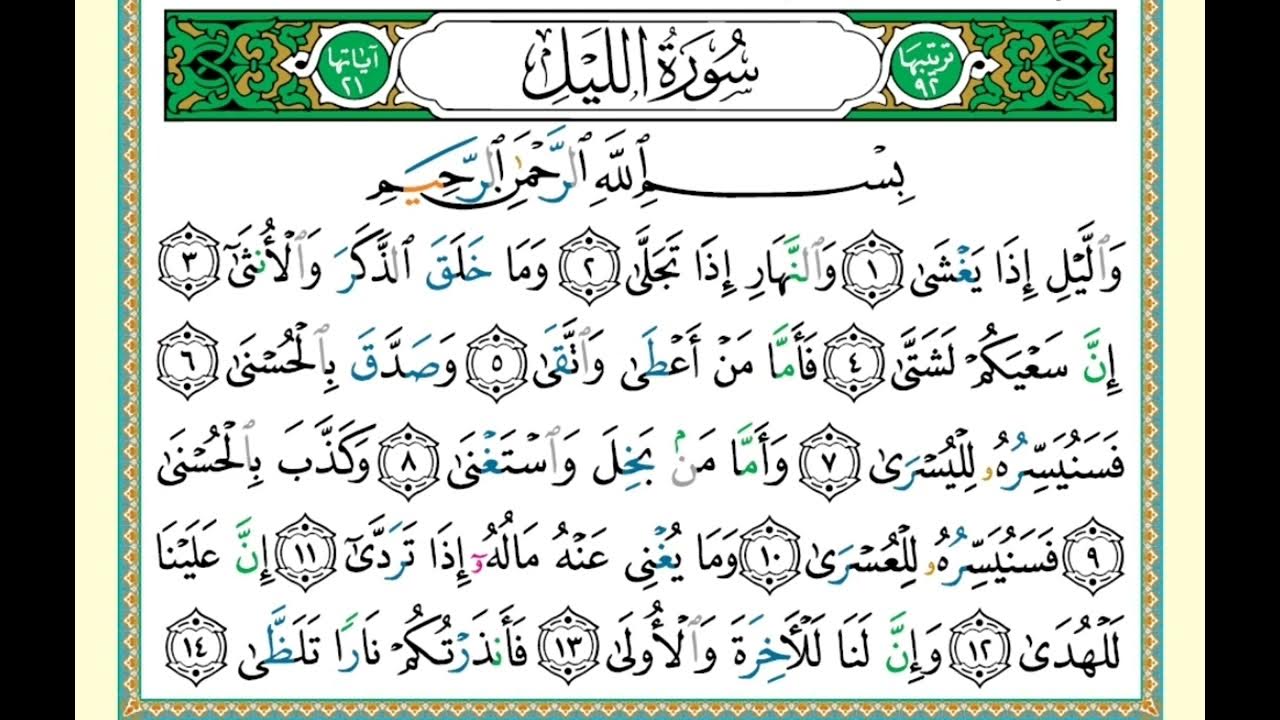 ترتيبها ٩٢ سُورَةُ اللَّيْلِ آياتها ٢١
بِسْمِ ٱللَّهِ ٱلرَّحْمَٰنِ ٱلرَّحِيمِ
وَٱلَّيْلِ إِذَا يَغْشَىٰ ١ وَٱلنَّهَارِ إِذَا تَجَلَّىٰ ٢ وَمَا خَلَقَ ٱلذَّكَرَ وَٱلْأُنثَىٰٓ ٣
إِنَّ سَعْيَكُمْ لَشَتَّىٰ ٤ فَأَمَّا مَنْ أَعْطَىٰ وَٱتَّقَىٰ ٥ وَصَدَّقَ بِٱلْحُسْنَىٰ ٦
فَسَنُيَسِّرُهُۥ لِلْيُسْرَىٰ ٧ وَأَمَّا مَنۢ بَخِلَ وَٱسْتَغْنَىٰ ٨ وَكَذَّبَ بِٱلْحُسْنَىٰ
٩ فَسَنُيَسِّرُهُۥ لِلْعُسْرَىٰ ١٠ وَمَا يُغْنِى عَنْهُ مَالُهُۥٓ إِذَا تَرَدَّىٰٓ ١١ إِنَّ عَلَيْنَا
لَلْهُدَىٰ ١٢ وَإِنَّ لَنَا لَلْأَخِرَةَ وَٱلْأُولَىٰ ١٣ فَأَنذَرْتُكُمْ نَارًا تَلَظَّىٰ ١٤